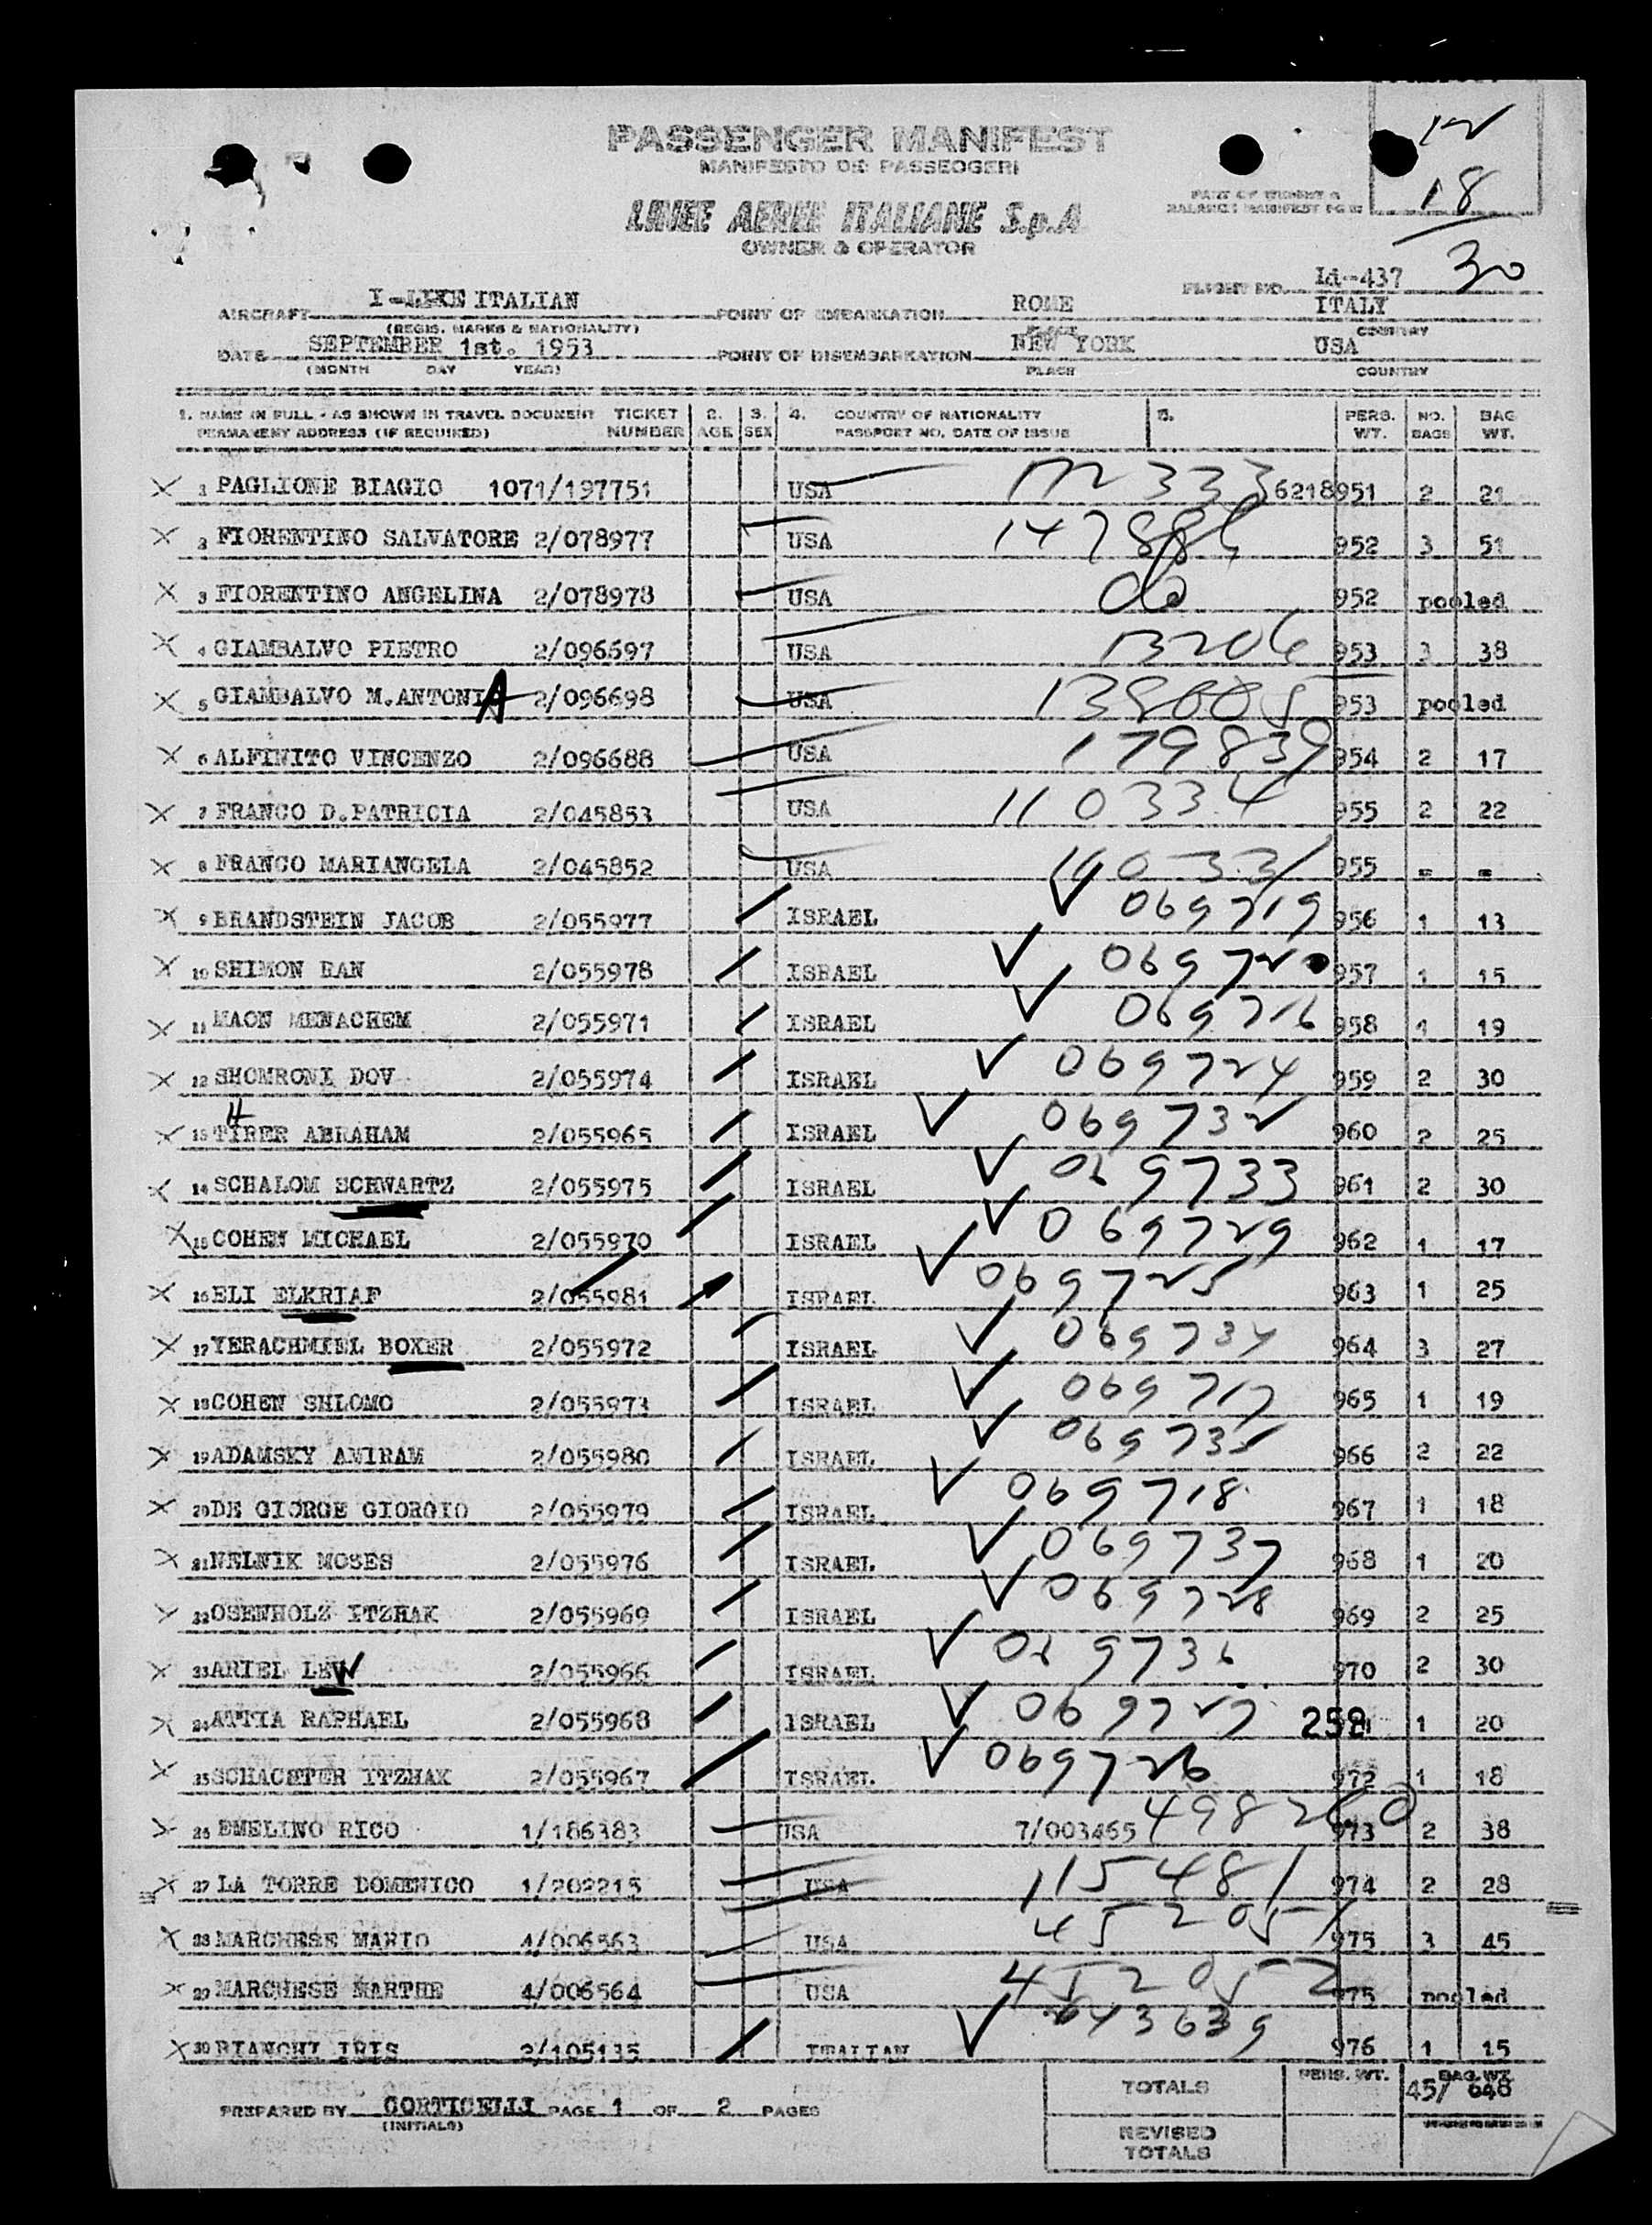 12
18
30
PASSENGER MANIFEST
MANIFESTO DEI PASSEGGERI
LINEE AEREE ITALIANE S.p.A
OWNER & OPERATOR
PART OF WEIGHT &
BALANCE MANIFEST
FLIGHT NO. LI-437
AIRCRAFT I-LIKE ITALIAN POINT OF EMBARKATION ROME ITALY
(REGIS. MARKS & NATIONALITY) PLACE COUNTRY
DATE SEPTEMBER 1st. 1953 POINT OF DISEMBARKATION NEW YORK USA
(MONTH DAY YEAR) PLACE COUNTRY
1. NAME IN FULL - AS SHOWN IN TRAVEL DOCUMENT TICKET 2. 3. 4. COUNTRY OF NATIONALITY 5. PERS. NO. BAG
PERMANENT ADDRESS (IF REQUIRED) NUMBER AGE SEX PASSPORT NO. DATE OF ISSUE WT. BAGS WT.
X 1 PAGLIONE BIAGIO 1071/197751 USA 6218951 2 21
X 2 FIORENTINO SALVATORE 2/078977 USA 952 3 51
X 3 FIORENTINO ANGELINA 2/078978 USA 952 pooled
X 4 GIAMBALVO PIETRO 2/096697 USA 13206 953 3 38
X 5 GIAMBALVO M.ANTONIA 2/096698 USA 953 pooled
X 6 ALFINITO VINCENZO 2/096688 USA 179839 954 2 17
X 7 FRANCO D.PATRICIA 2/045853 USA 110334 955 2 22
X 8 FRANCO MARIANGELA 2/045852 USA 955 = =
X 9 BRANDSTEIN JACOB 2/055977 ISRAEL 069719 956 1 13
X 10 SHIMON RAN 2/055978 ISRAEL 069720 957 1 15
X 11 MAON MENACHEM 2/055971 ISRAEL 069716 958 1 19
X 12 SHOMRONI DOV 2/055974 ISRAEL 069724 959 2 30
H
X 13 TIBER ABRAHAM 2/055965 ISRAEL 069732 960 2 25
X 14 SCHALOM SCHWARTZ 2/055975 ISRAEL 069733 961 2 30
X 15 COHEN MICHAEL 2/055970 ISRAEL 069729 962 1 17
X 16 ELI ELKRIAF 2/055981 ISRAEL 069725 963 1 25
X 17 YERACHMIEL BOXER 2/055972 ISRAEL 069734 964 3 27
X 18 COHEN SHLOMO 2/055973 ISRAEL 069717 965 1 19
X 19 ADAMSKY AMIRAM 2/055980 ISRAEL 069735 966 2 22
X 20 DE GIORGE GIORGIO 2/055979 ISRAEL 069718 967 1 18
X 21 NELNIK MOSES 2/055976 ISRAEL 069737 968 1 20
X 22 OSENHOLZ ITZHAK 2/055969 ISRAEL 069728 969 2 25
X 23 ARIEL LEW 2/055966 ISRAEL 069736 970 2 30
X 24 ATTIA RAPHAEL 2/055968 ISRAEL 069727 259 1 20
X 25 SCHACHTER ITZHAK 2/055967 ISRAEL 069726 972 1 18
X 26 EMELINO RICO 1/186383 USA 7/003465 973 2 38
X 27 LA TORRE DOMENICO 1/202215 USA 115481 974 2 28
X 28 MARCHESE MARIO 4/006563 USA 452051 975 3 45
X 29 MARCHESE MARTHE 4/006564 USA 452052 975 pooled
X 30 BIANCHI IRIS 2/105135 ITALIAN 976 1 15
TOTALS PERS. WT. BAG. WT.
45/ 648
PREPARED BY CORTICELLI PAGE 1 OF 2 PAGES
(INITIALS)
REVISED
TOTALS